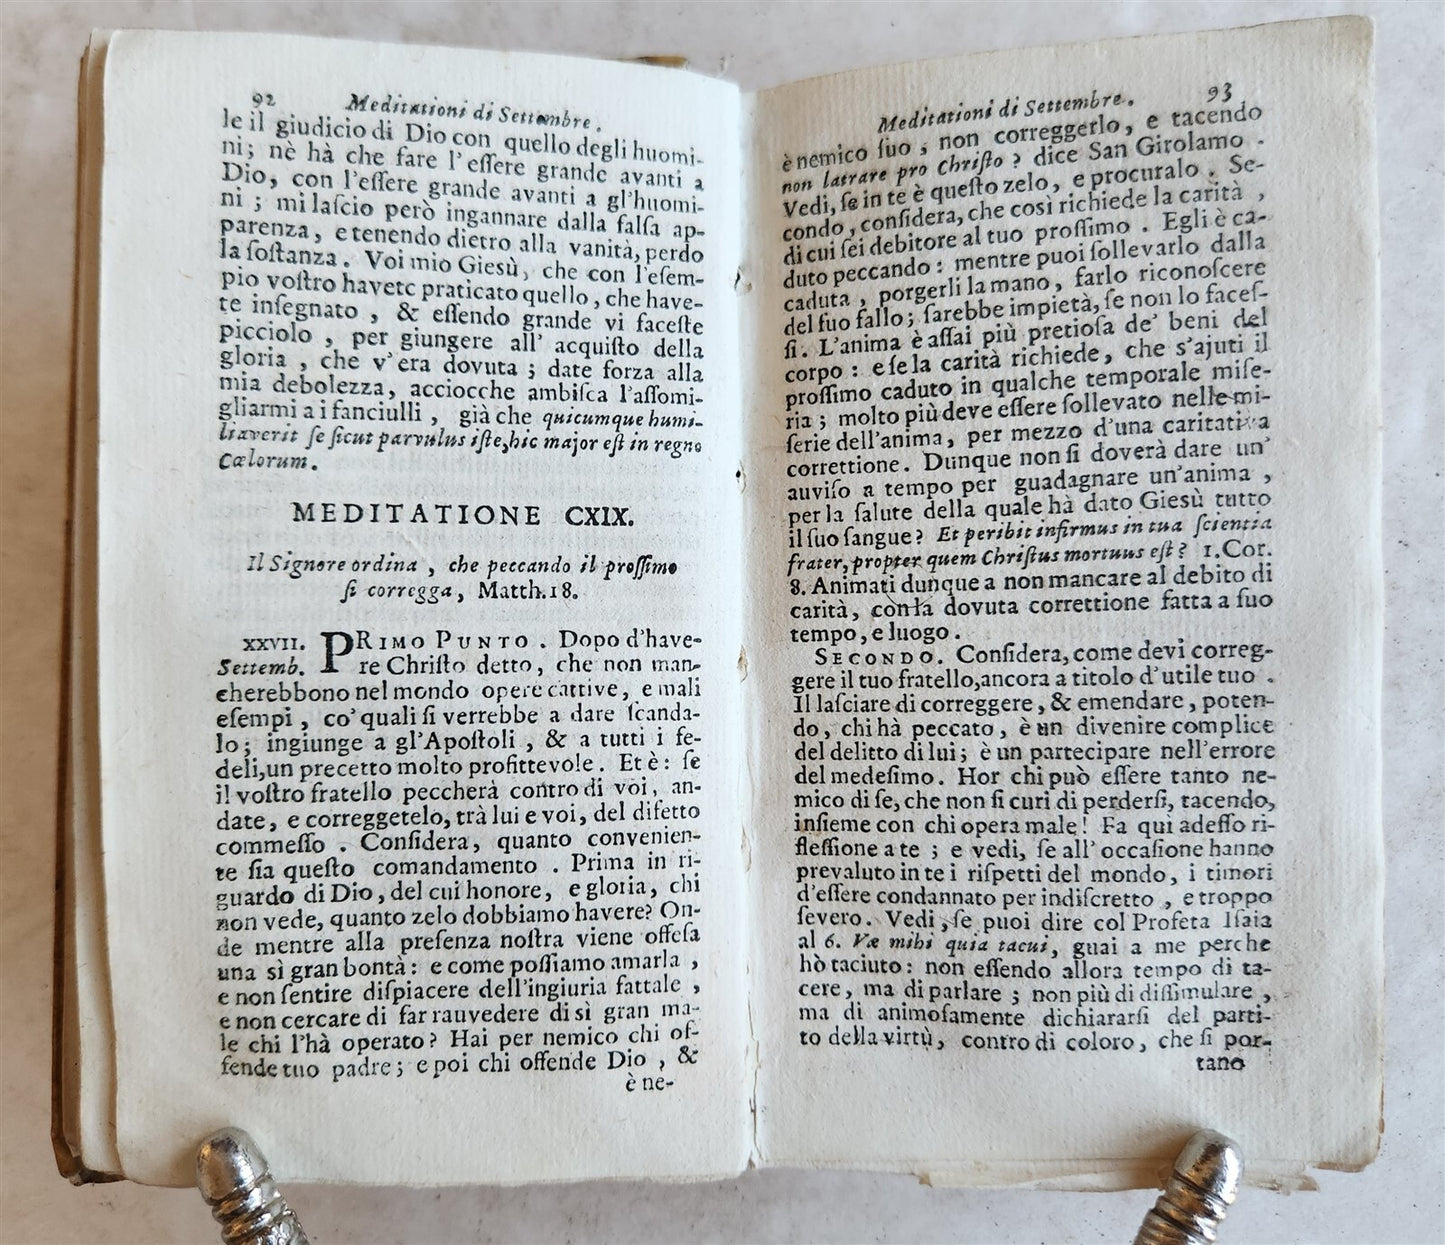 92 Meditationi di Settembre.
le il giudicio di Dio con quello degli huomi-
ni; nè hà che fare l'eſſere grande avanti a
Dio, con l'eſſere grande avanti a gl'huomi-
ni; mi laſcio però ingannare dalla falſa ap-
parenza, e tenendo dietro alla vanità, perdo
la ſoſtanza. Voi mio Giesù, che con l'eſem-
pio voſtro havete praticato quello, che have-
te inſegnato, & eſſendo grande vi faceſte
picciolo, per giungere all' acquiſto della
gloria, che v'era dovuta; date forza alla
mia debolezza, acciocche ambiſca l'aſſomi-
gliarmi a i fanciulli, già che quicumque humi-
liaverit ſe ſicut parvulus iſte, hic major eſt in regno
Cælorum.
MEDITATIONE CXIX.
Il Signore ordina, che peccando il proſſimo
ſi corregga, Matth. 18.
XXVII. PRIMO PUNTO. Dopo d'have-
Settemb. re Chriſto detto, che non man-
cherebbono nel mondo opere cattive, e mali
eſempi, co' quali ſi verrebbe a dare ſcanda-
lo; ingiunge a gl'Apoſtoli, & a tutti i fe-
deli, un precetto molto profittevole. Et è: ſe
il voſtro fratello peccherà contro di voi, an-
date, e correggetelo, trà lui e voi, del difetto
commeſſo. Conſidera, quanto convenien-
te ſia queſto comandamento. Prima in ri-
guardo di Dio, del cui honore, e gloria, chi
non vede, quanto zelo dobbiamo havere? On-
de mentre alla preſenza noſtra viene offeſa
una sì gran bontà: e come poſſiamo amarla,
e non ſentire diſpiacere dell'ingiuria fattale,
e non cercare di far rauvedere di sì gran ma-
le chi l'hà operato? Hai per nemico chi of-
fende tuo padre; e poi chi offende Dio, &
è ne-
Meditationi di Settembre. 93
è nemico ſuo, non correggerlo, e tacendo
non latrare pro Chriſto? dice San Girolamo.
Vedi, ſe in te è queſto zelo, e procuralo. Se-
condo, conſidera, che così richiede la carità,
di cui ſei debitore al tuo proſſimo. Egli è ca-
duto peccando: mentre puoi ſollevarlo dalla
caduta, porgerli la mano, farlo riconoſcere
del ſuo fallo; ſarebbe impietà, ſe non lo faceſ-
ſi. L'anima è aſſai più pretioſa de' beni del
corpo: e ſe la carità richiede, che s'ajuti il
proſſimo caduto in qualche temporale miſe-
ria; molto più deve eſſere ſollevato nelle mi-
ſerie dell'anima, per mezzo d'una caritativa
correttione. Dunque non ſi doverà dare un'
auviſo a tempo per guadagnare un'anima,
per la ſalute della quale hà dato Giesù tutto
il ſuo ſangue? Et peribit infirmus in tua ſcientia
frater, propter quem Chriſtus mortuus eſt? 1. Cor.
8. Animati dunque a non mancare al debito di
carità, con la dovuta correttione fatta a ſuo
tempo, e luogo.
SECONDO. Conſidera, come devi correg-
gere il tuo fratello, ancora a titolo d'utile tuo.
Il laſciare di correggere, & emendare, poten-
do, chi hà peccato, è un divenire complice
del delitto di lui; è un partecipare nell'errore
del medeſimo. Hor chi può eſſere tanto ne-
mico di ſe, che non ſi curi di perderſi, tacendo,
inſieme con chi opera male! Fa quì adeſſo ri-
fleſſione a te; e vedi, ſe all' occaſione hanno
prevaluto in te i riſpetti del mondo, i timori
d'eſſere condannato per indiſcretto, e troppo
ſevero. Vedi, ſe puoi dire col Profeta Iſaia
al 6. Væ mihi quia tacui, guai a me perche
hò taciuto: non eſſendo allora tempo di ta-
cere, ma di parlare; non più di diſſimulare,
ma di animoſamente dichiararſi del parti-
to della virtù, contro di coloro, che ſi por-
tano